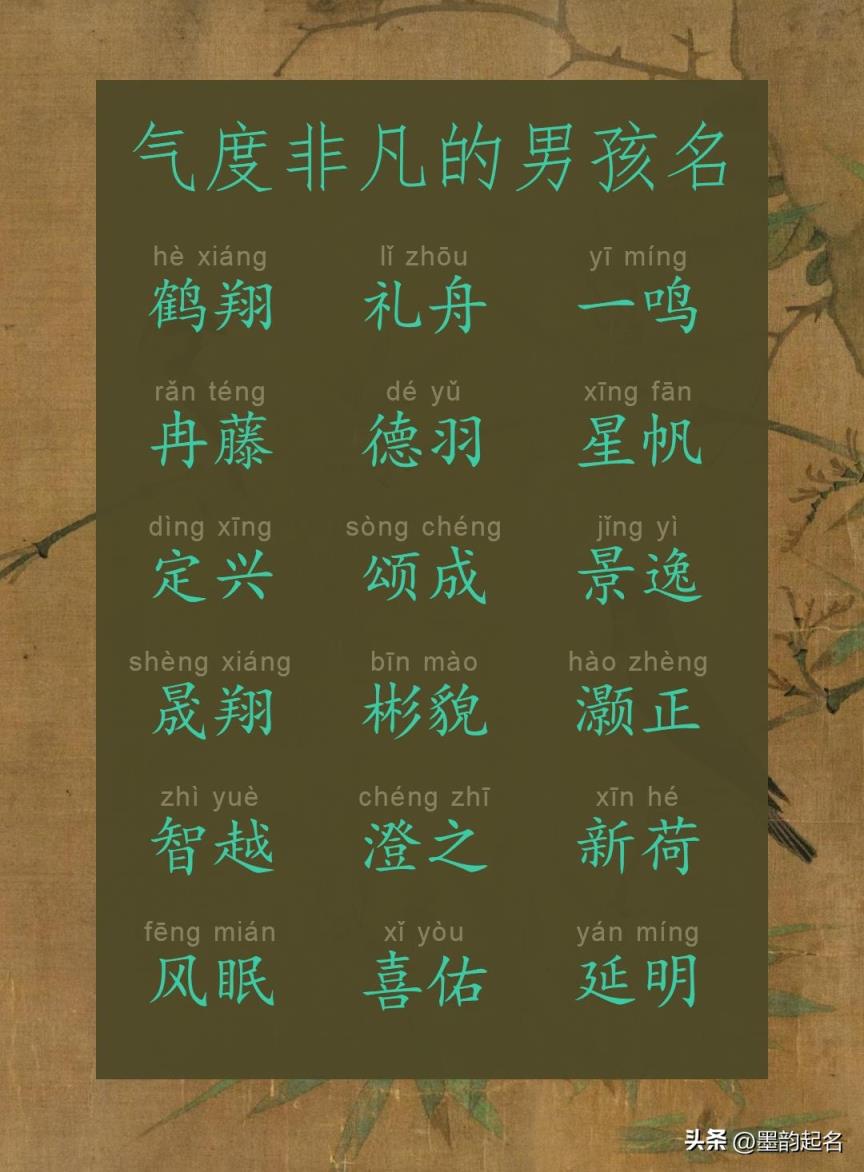 气度非凡的男孩名
hè xiáng lǐ zhōu yī míng
鹤翔 礼舟 一鸣
rǎn téng dé yǔ xīng fān
冉藤 德羽 星帆
dìng xīng sòng chéng jǐng yì
定兴 颂成 景逸
shèng xiáng bīn mào hào zhèng
晟翔 彬貌 灏正
zhì yuè chéng zhī xīn hé
智越 澄之 新荷
fēng mián xǐ yòu yán míng
风眠 喜佑 延明
头条 @墨韵起名